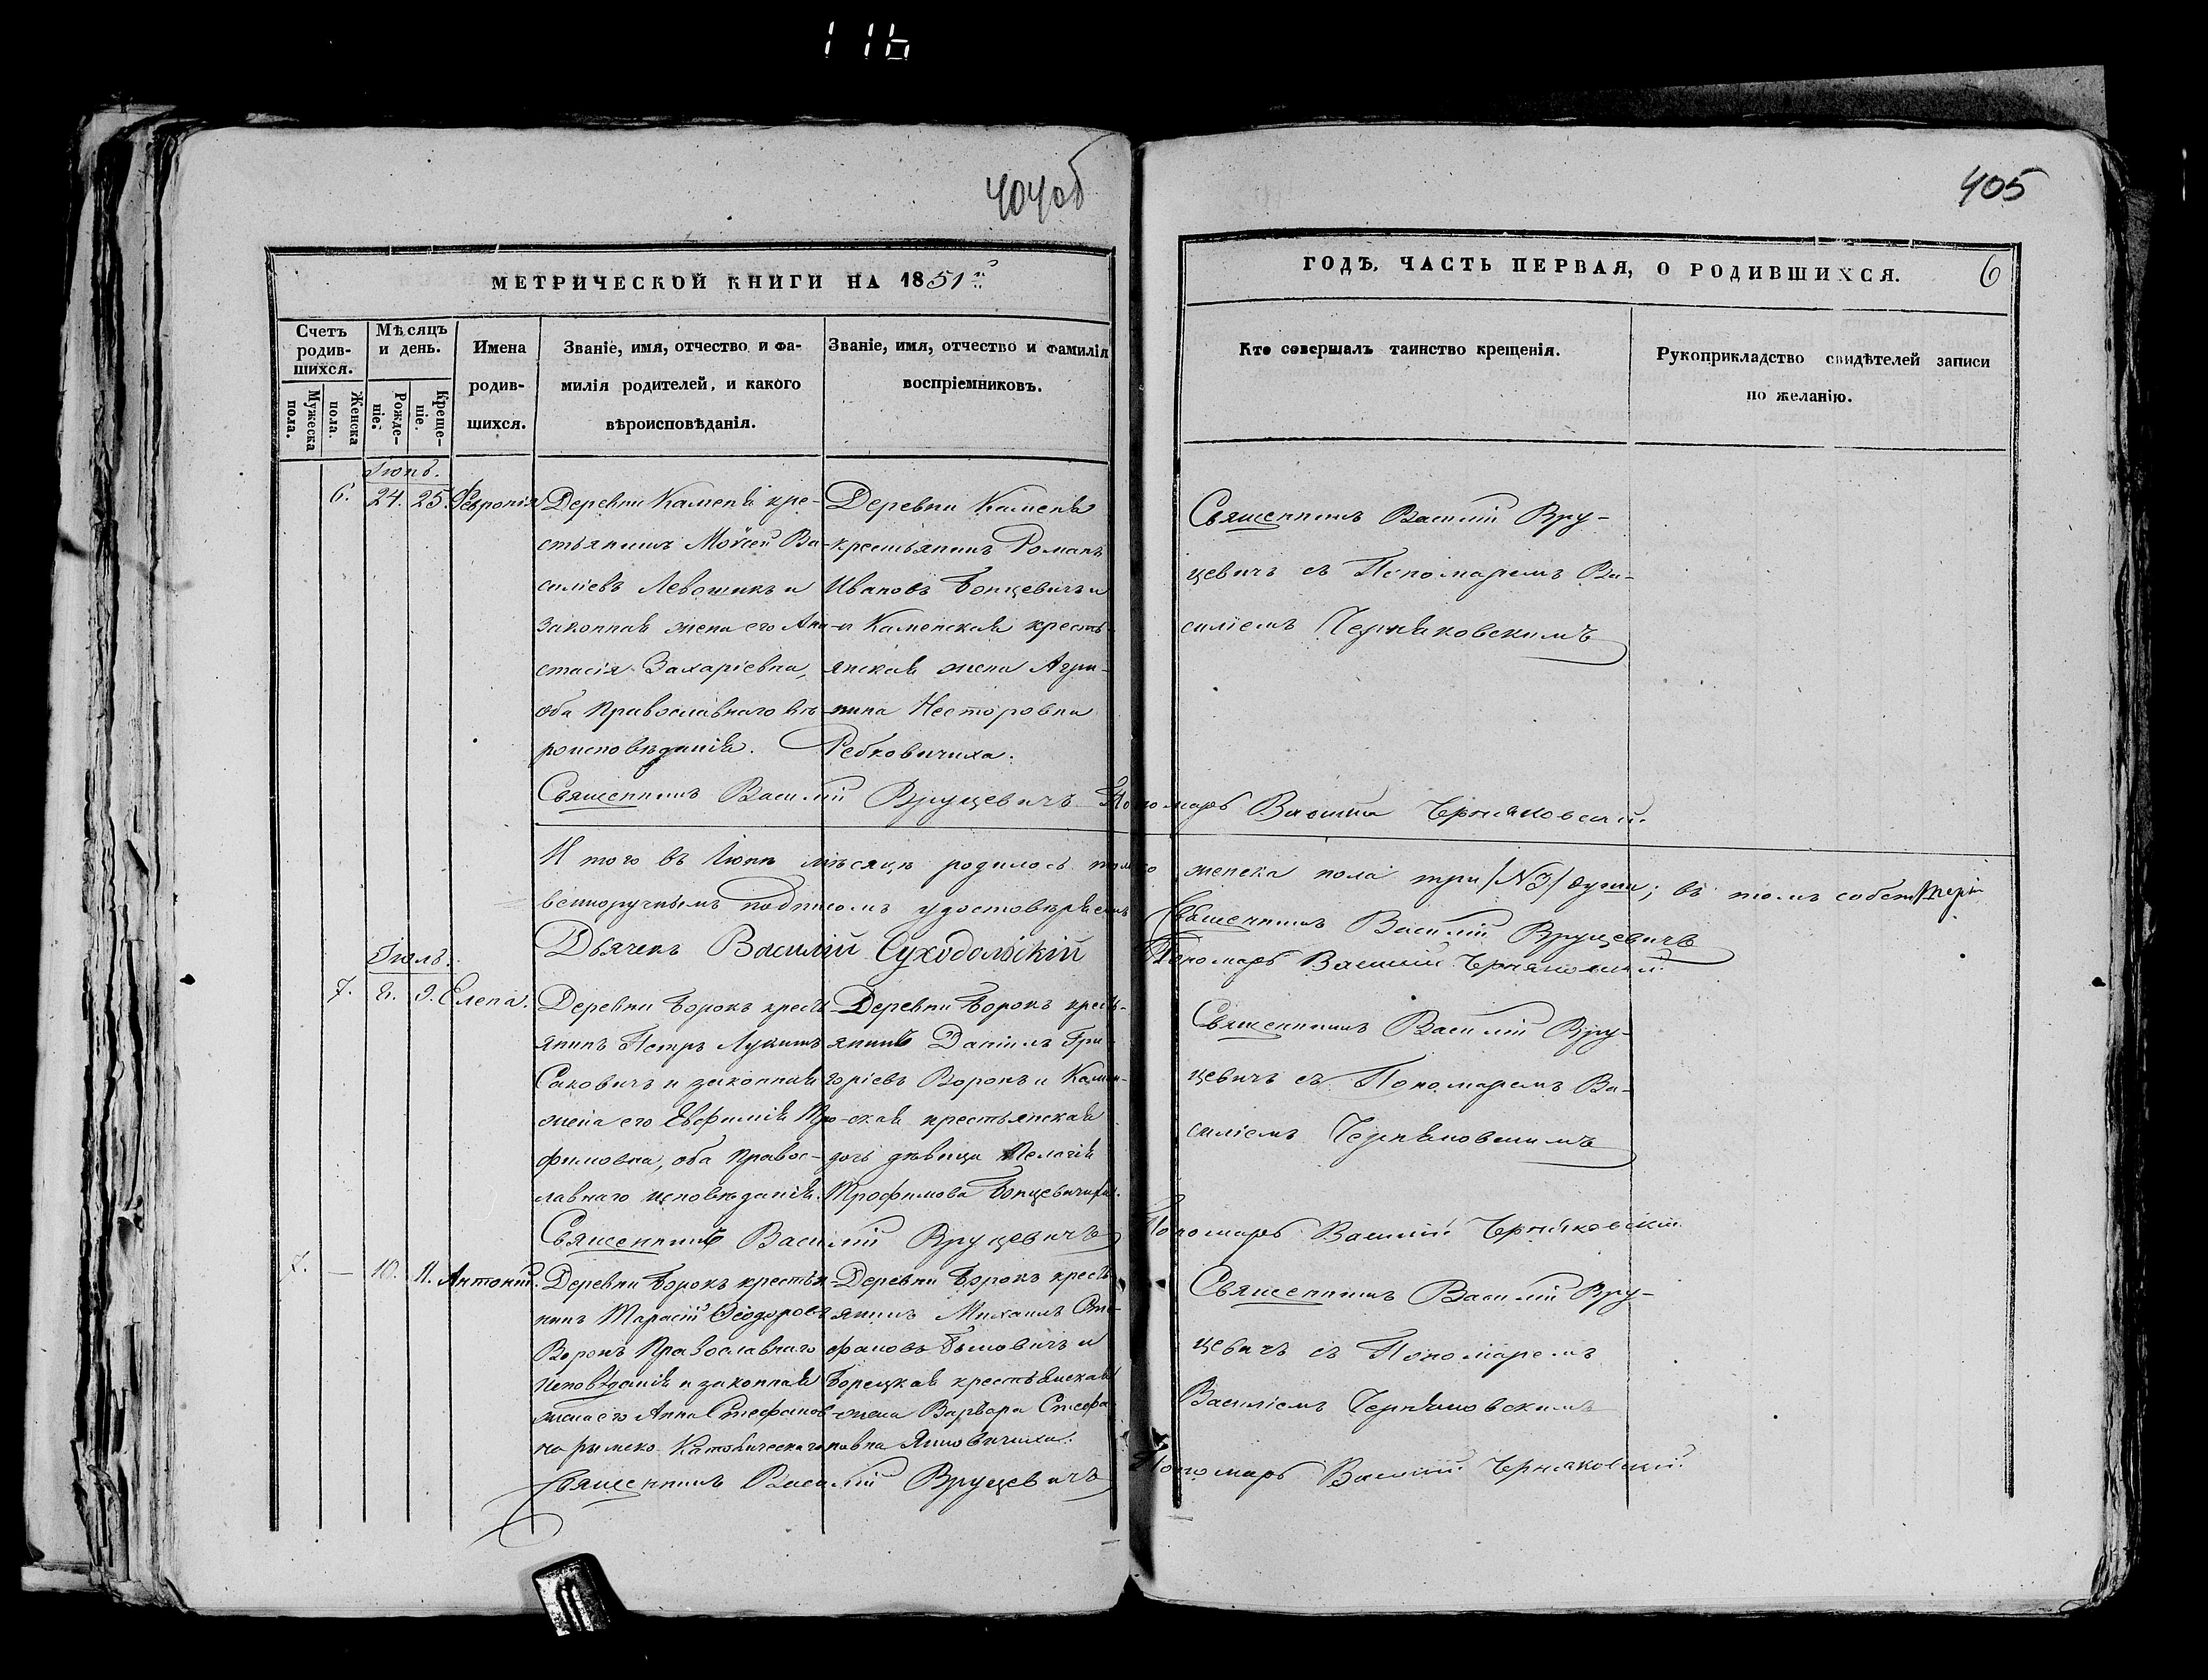 116
404об
405
МЕТРИЧЕСКОЙ КНИГИ НА 1851й
ГОДЪ, ЧАСТЬ ПЕРВАЯ, О РОДИВШИХСЯ.
6
Счетъ родив-шихся.
Мужеска пола.
Женска пола.
Мѣсяцъ и день.
Рожде-ніе.
Креще-ніе.
Имена родив-шихся.
Званіе, имя, отчество и фа-
милія родителей, и какого
вѣроисповѣданія.
Званіе, имя, отчество и фамилія
воспріемниковъ.
Кто совершалъ таинство крещенія.
Рукоприкладство свидѣтелей записи
по желанію.
Іюнь.
6. 24. 25. Февронія
Деревни Каменя кре-
стьянинъ Моѵсей Ва-
силіевъ Левошикъ и
законная жена его Ана-
стасія Захаріевна,
оба Православнаго вѣ-
роисповѣданія.
Деревни Каменя
крестьянинъ Романъ
Ивановъ Бонцевичъ и
и Каменская кресть-
янская жена Агри-
пина Несторовна
Ребковичиха.
Священникъ Василій Вру-
цевичъ съ Пономаремъ Ва-
силіемъ Черняковскимъ
Священникъ Василій Вруцевичъ Пономарь Василій Черняковскій.
Итого въ Іюнѣ мѣсяцѣ родилось только женска пола три /№3/ души; въ томъ собст
венноручнымъ подписомъ удостовѣряемъ Священникъ Василій Вруцевичъ
Дьячекъ Василій Суходольскій Пономарь Василій Черняковскій.
Іюль.
7. 8. 9. Елена.
Деревни Борокъ кресть-
янинъ Петръ Лукинъ
Саковичъ и законная
жена его Евфимія Тро-
фимовна, оба Правос-
лавнаго исповѣданія.
Деревни Борокъ кресть-
янинъ Даніилъ Гри-
горіевъ Воронъ и Камен-
ская крестьянская
дочь дѣвица Пелагія
Трофимова Бонцевичиха.
Священникъ Василій Вру-
цевичъ съ Пономаремъ Ва-
силіемъ Черняковскимъ
Священникъ Василій Вруцевичъ Пономарь Василій Черняковскій.
7. — 10. 11. Антоній.
Деревни Борокъ крестья-
нинъ Тарасій Ѳеодоровъ
Воронъ Православнаго
исповѣданія и законная
жена его Анна Стефанов-
на римско-Католическаго
Деревни Борокъ кресть-
янинъ Михаилъ Сте-
фановъ и
Борецкая крестьянская
жена Варвара Стефа-
новна Яновичиха.
Священникъ Василій Вру-
цевичъ съ Пономаремъ
Василіемъ Черняковскимъ
Священникъ Василій Вруцевичъ Пономарь Василій Черняковскій